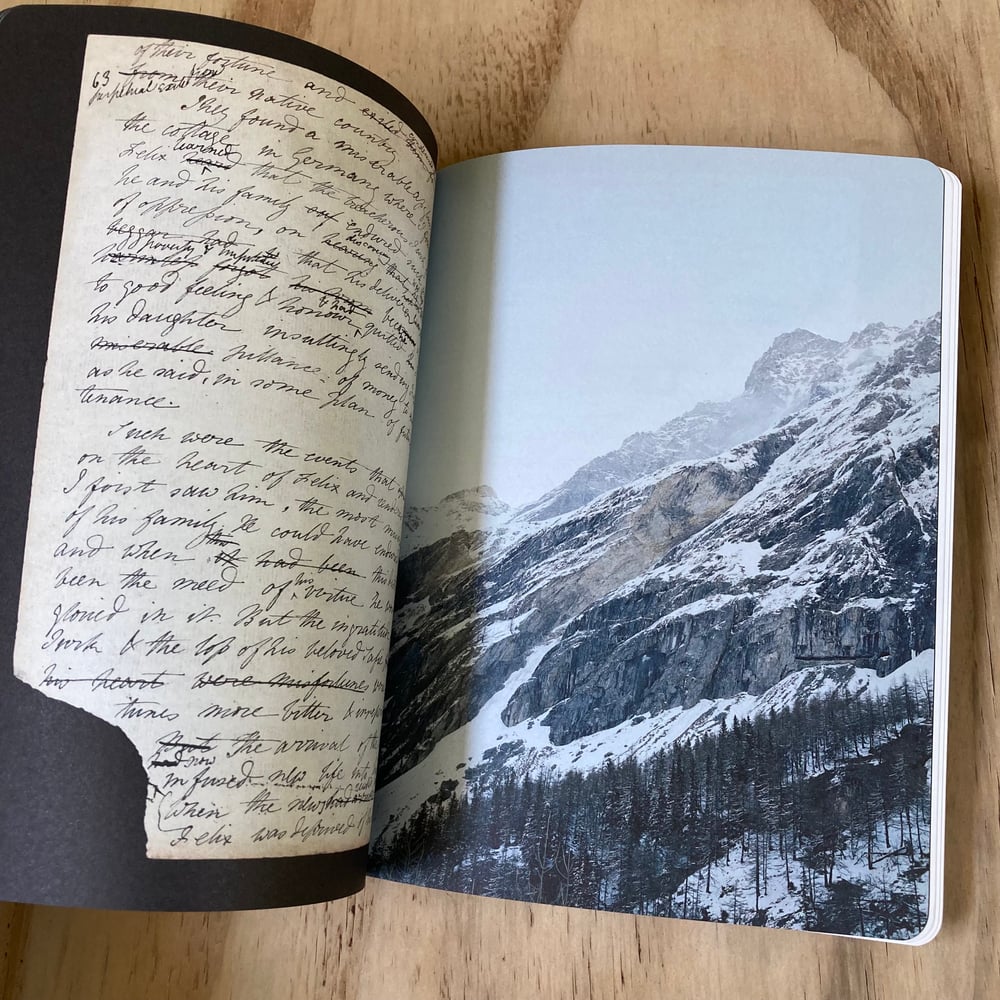 of their fortune and exiled
63 from now
perpetual exile their native country
They found a miserable
the cottage in Germany where
learned
Felix that the treacherous
he and his family endured such
of oppression, on
discovering
hearing that
beggar had
poverty & impotency that his deliverer
to good feeling & honour, quitted
& had
his daughter insultingly sending
miserable pittance of money
as he said, in some plan of
tenance.
Such were the events that
on the heart of Felix and
I first saw him, the most
of his family. He could have
and when it had been this
been the meed of his virtue, he
gloried in it. But the ingratitude
Turk & the loss of his beloved
his heart were misfortunes
times more bitter &
But The arrival of the
had now
infused new life into
When the news had
Felix was deprived of